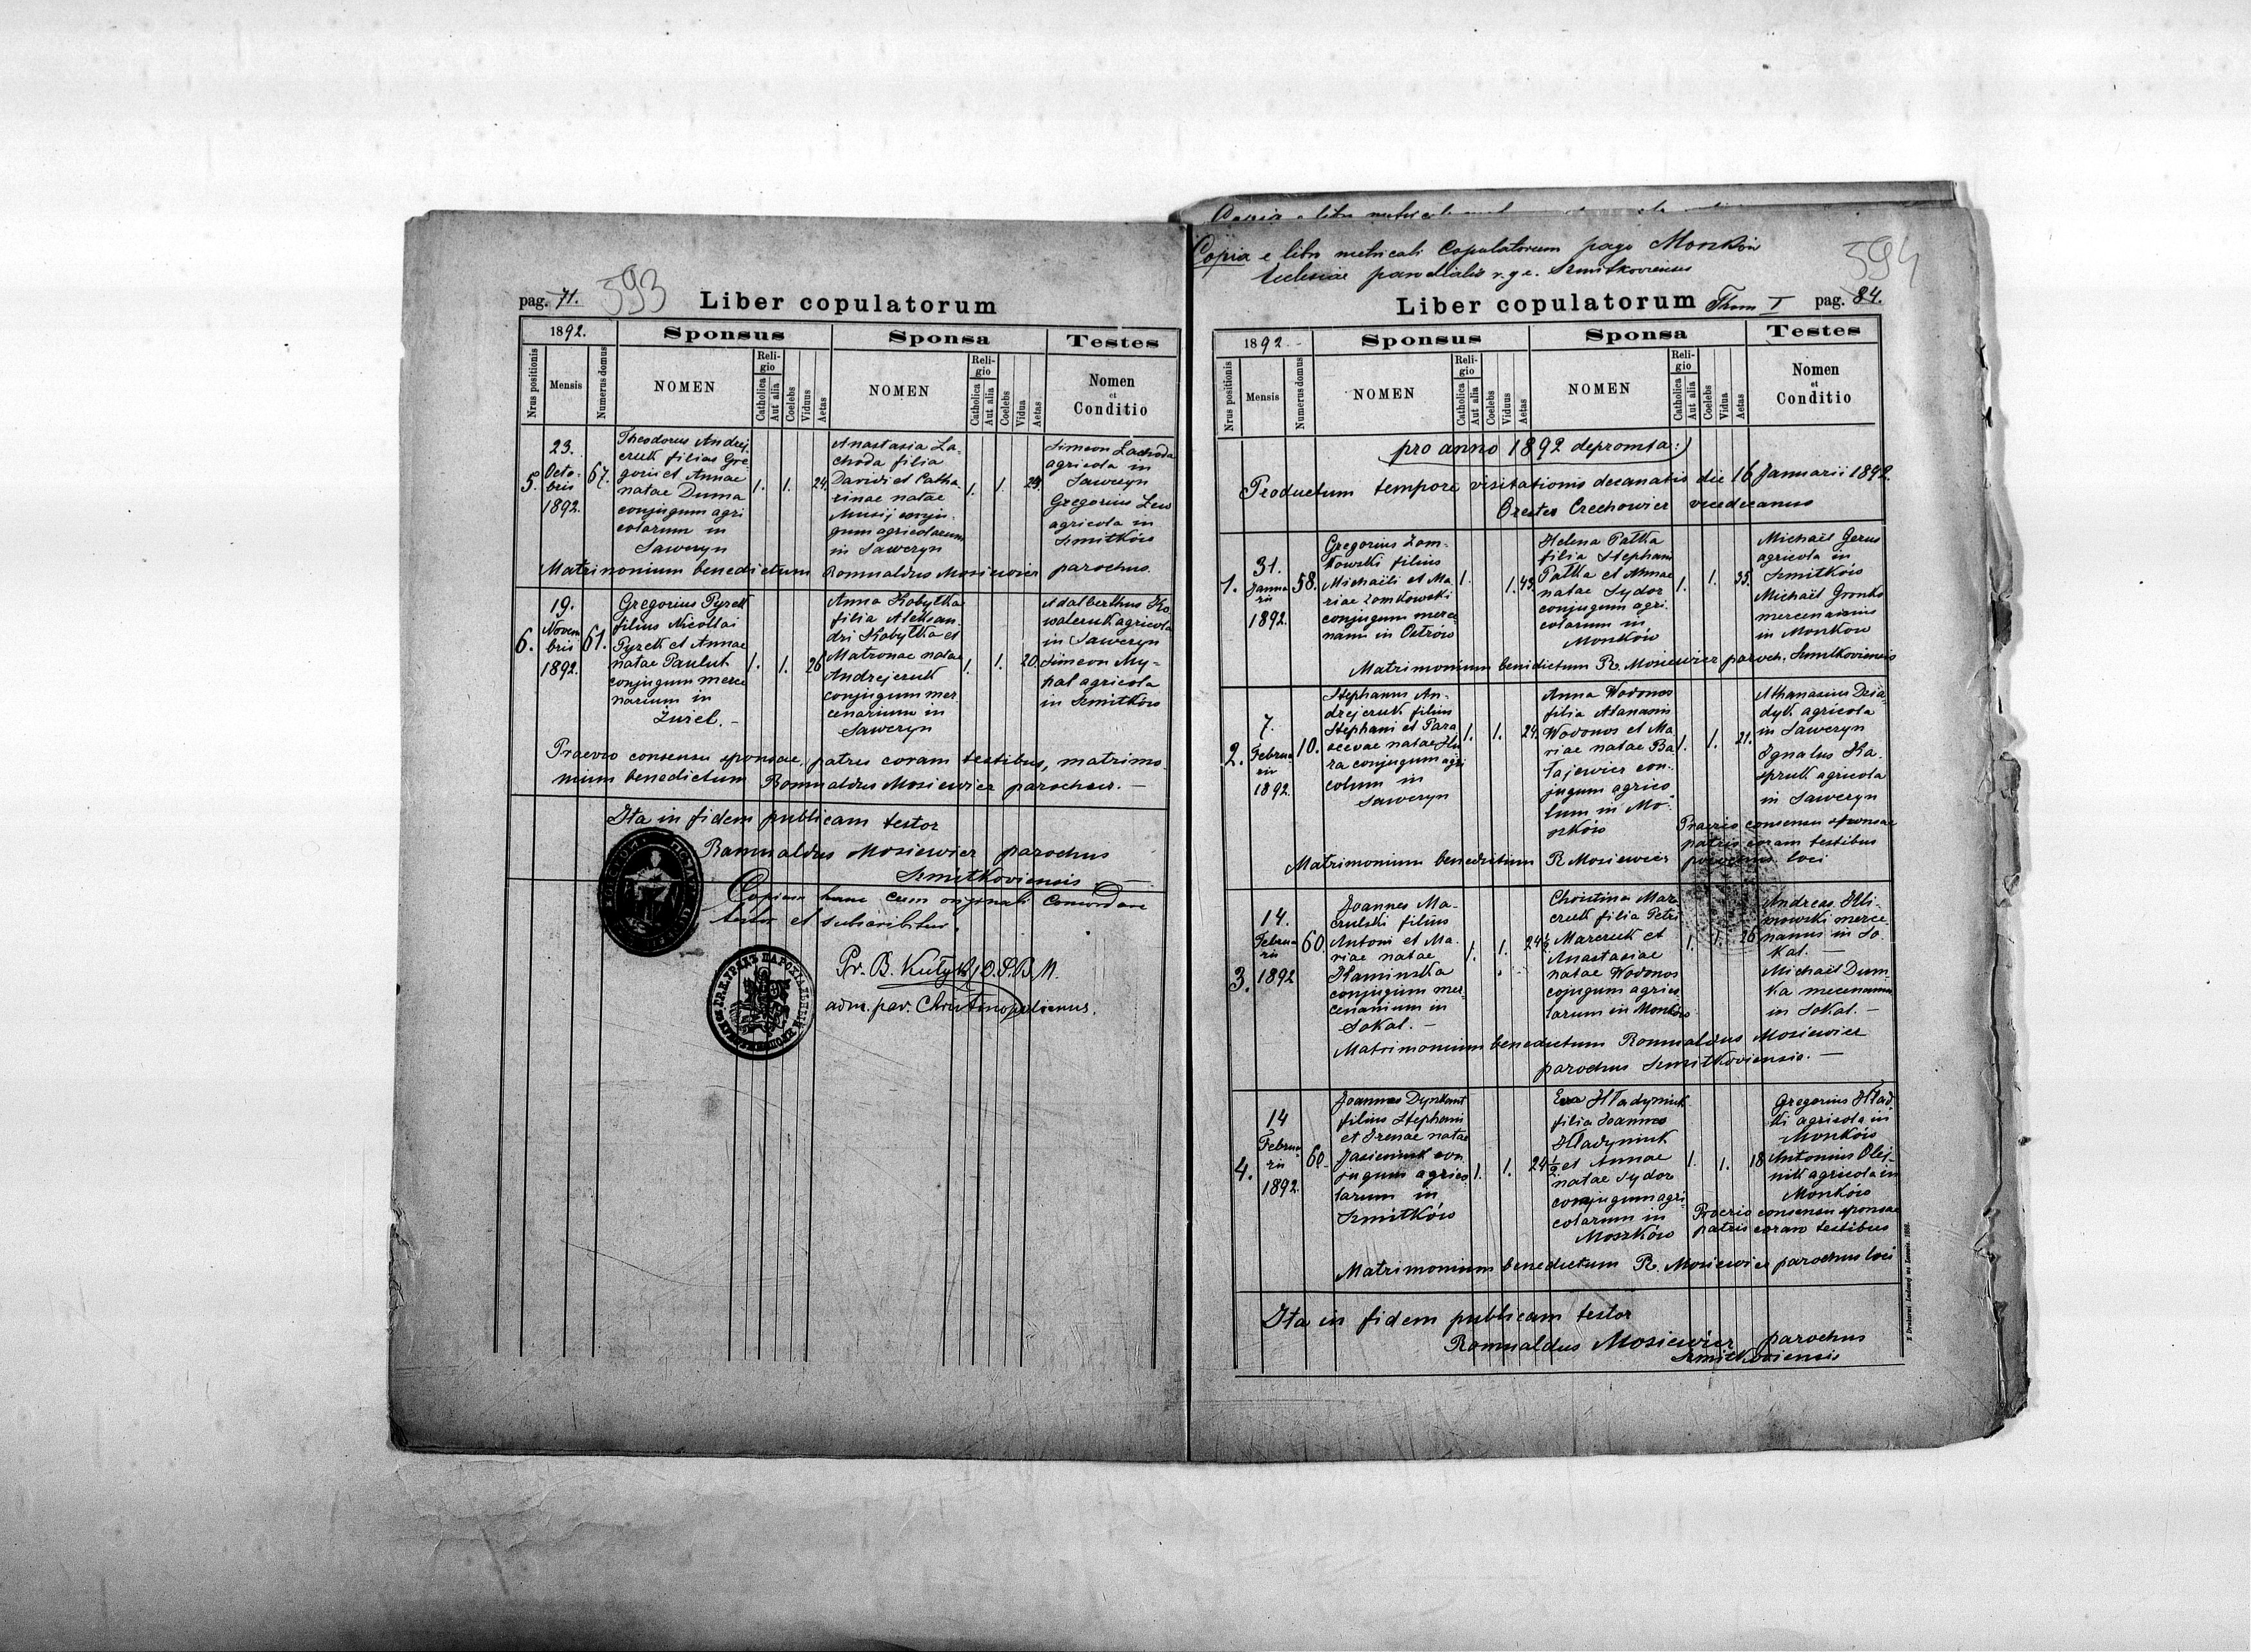 593
pag. 71. Liber copulatorum
1892. Sponsus Sponsa Testes
Nrus positionis Mensis Numerus domus NOMEN Religio Catholica Aut alia Coelebs Viduus Aetas NOMEN Religio Catholica Aut alia Coelebs Vidua Aetas Nomen et Conditio
5. 23. Octo-
bris
1892.
67.
Theodorus Andrej-
cruk filius Gre
gorii et Annae
natae Duma
conjugum agri
colarum in
Saweryn
1. 1. 24.
Anastasia La-
choda filia
Davidi et Catha-
rinae natae
Musij conju-
gum agricolarum
in Saweryn
1. 1. 24.
Simeon Lachoda
agricola in
Saweryn
Gregorius Lew
agricola in
Szmitków
Matrimonium benedictum Romualdus Mosiewicz parochus.
6. 19.
Novem
bris
1892.
61.
Gregorius Pyrek
filius Nicolai
Pyrek et Annae
natae Pauluk
conjugum merce
narium in
Żużel. -
1. 1. 26
Anna Kobyłka
filia Aleksan-
dri Kobyłka et
Matronae natae
Andrejcruk
conjugum mer
cenarium in
Saweryn
1. 1. 20.
Adalberthus Ko
walczuk agricola
in Saweryn
Simeon My-
hal agricola
in Szmitków
Praevio consensu sponsae, patris coram testibus, matrimo
nium benedictum Romualdus Mosiewicz parochus. —
Ita in fidem publicam testor
Romualdus Mosiewicz parochus
Szmitkoviensis
Copiam hanc cum originali concordare
testor et subscribitur.
Pr. B. Kułyk, O.S.B.M.
adm. par. Christinopolianus.
Copia e libro metricali Copulatorum pago Moszków
Ecclesiae parochialis r. g. c. Szmitkoviensis
594
Liber copulatorum Thom I pag. 84.
1892. Sponsus Sponsa Testes
Nrus positionis Mensis Numerus domus NOMEN Religio Catholica Aut alia Coelebs Viduus Aetas NOMEN Religio Catholica Aut alia Coelebs Vidua Aetas Nomen et Conditio
pro anno 1892 depromta:)
Productum tempore visitationis decanatis die 16 Januarii 1892.
Orestes Czechowicz vicedecanus
1. 31.
Janua
rii
1892.
58.
Gregorius Zom-
kowski filius
Michaeli et Ma
riae Zomkowski
conjugum merce
narii in Ostrów
1. 1. 43.
Helena Pałka
filia Stephani
Pałka et Annae
natae Sydor
conjugum agri-
colarum in
Moszków
1. 1. 35.
Michael Gerus
agricola in
Szmitków
Michael Gronko
mercenarius
in Moszków
Matrimonium benedictum R. Mosiewicz paroch. Szmitkoviensis
2. 7.
Februa
rii
1892.
10.
Stephanus An-
drejcruk filius
Stephani et Para
scevae natae Hu
ra conjugum agri
colum in
Saweryn
1. 1. 24.
Anna Wodonos
filia Atanasii
Wodonos et Ma
riae natae Ba
łajewicz con-
jugum agrico
lum in Mo-
szków
1. 1. 21.
Athanasius Dzia
dyk agricola
in Saweryn
Ignatus Ka-
spruk agricola
in Saweryn
Praevio consensu sponsae
patris coram testibus
Matrimonium benedictum R Mosiewicz parochus loci
3. 14.
Februa
rii
1892
60.
Joannes Ma-
crulski filius
Antoni et Ma-
riae natae
Kaminska
conjugum mer-
cenarium in
Sokal. —
1. 1. 24½
Christina Mar
cruk filia Petri
Marcruk et
Anastasiae
natae Wodonos
cojugum agrico
larum in Moszków
1. 1. 26
Andreas Kli-
mowski merce
narius in So-
kal. —
Michael Dum-
ka mecenarius
in Sokal. —
Matrimonium benedictum Romualdus Mosiewicz
parochus Szmitkoviensis. —
4. 14
Februa
rii
1892
60.
Joannes
filius Stephani
et Irenae natae
Jasieniuk con
jugum agrico
larum in
Szmitków
1. 1. 24½
Eva Hładyniuk
filia Joannes
Hładyniuk
et Annae
natae Sydor
conjugum agri-
colarum in
Moszków
1. 1. 18
Gregorius Hład
ki agricola in
Moszków
Antonius Olej-
nik agricola in
Moszków
Praevio consensu sponsae
patris coram testibus
Matrimonium benedictum R. Mosiewicz parochus loci
Ita in fidem publicam testor
Romualdus Mosiewicz parochus
Szmitkoviensis